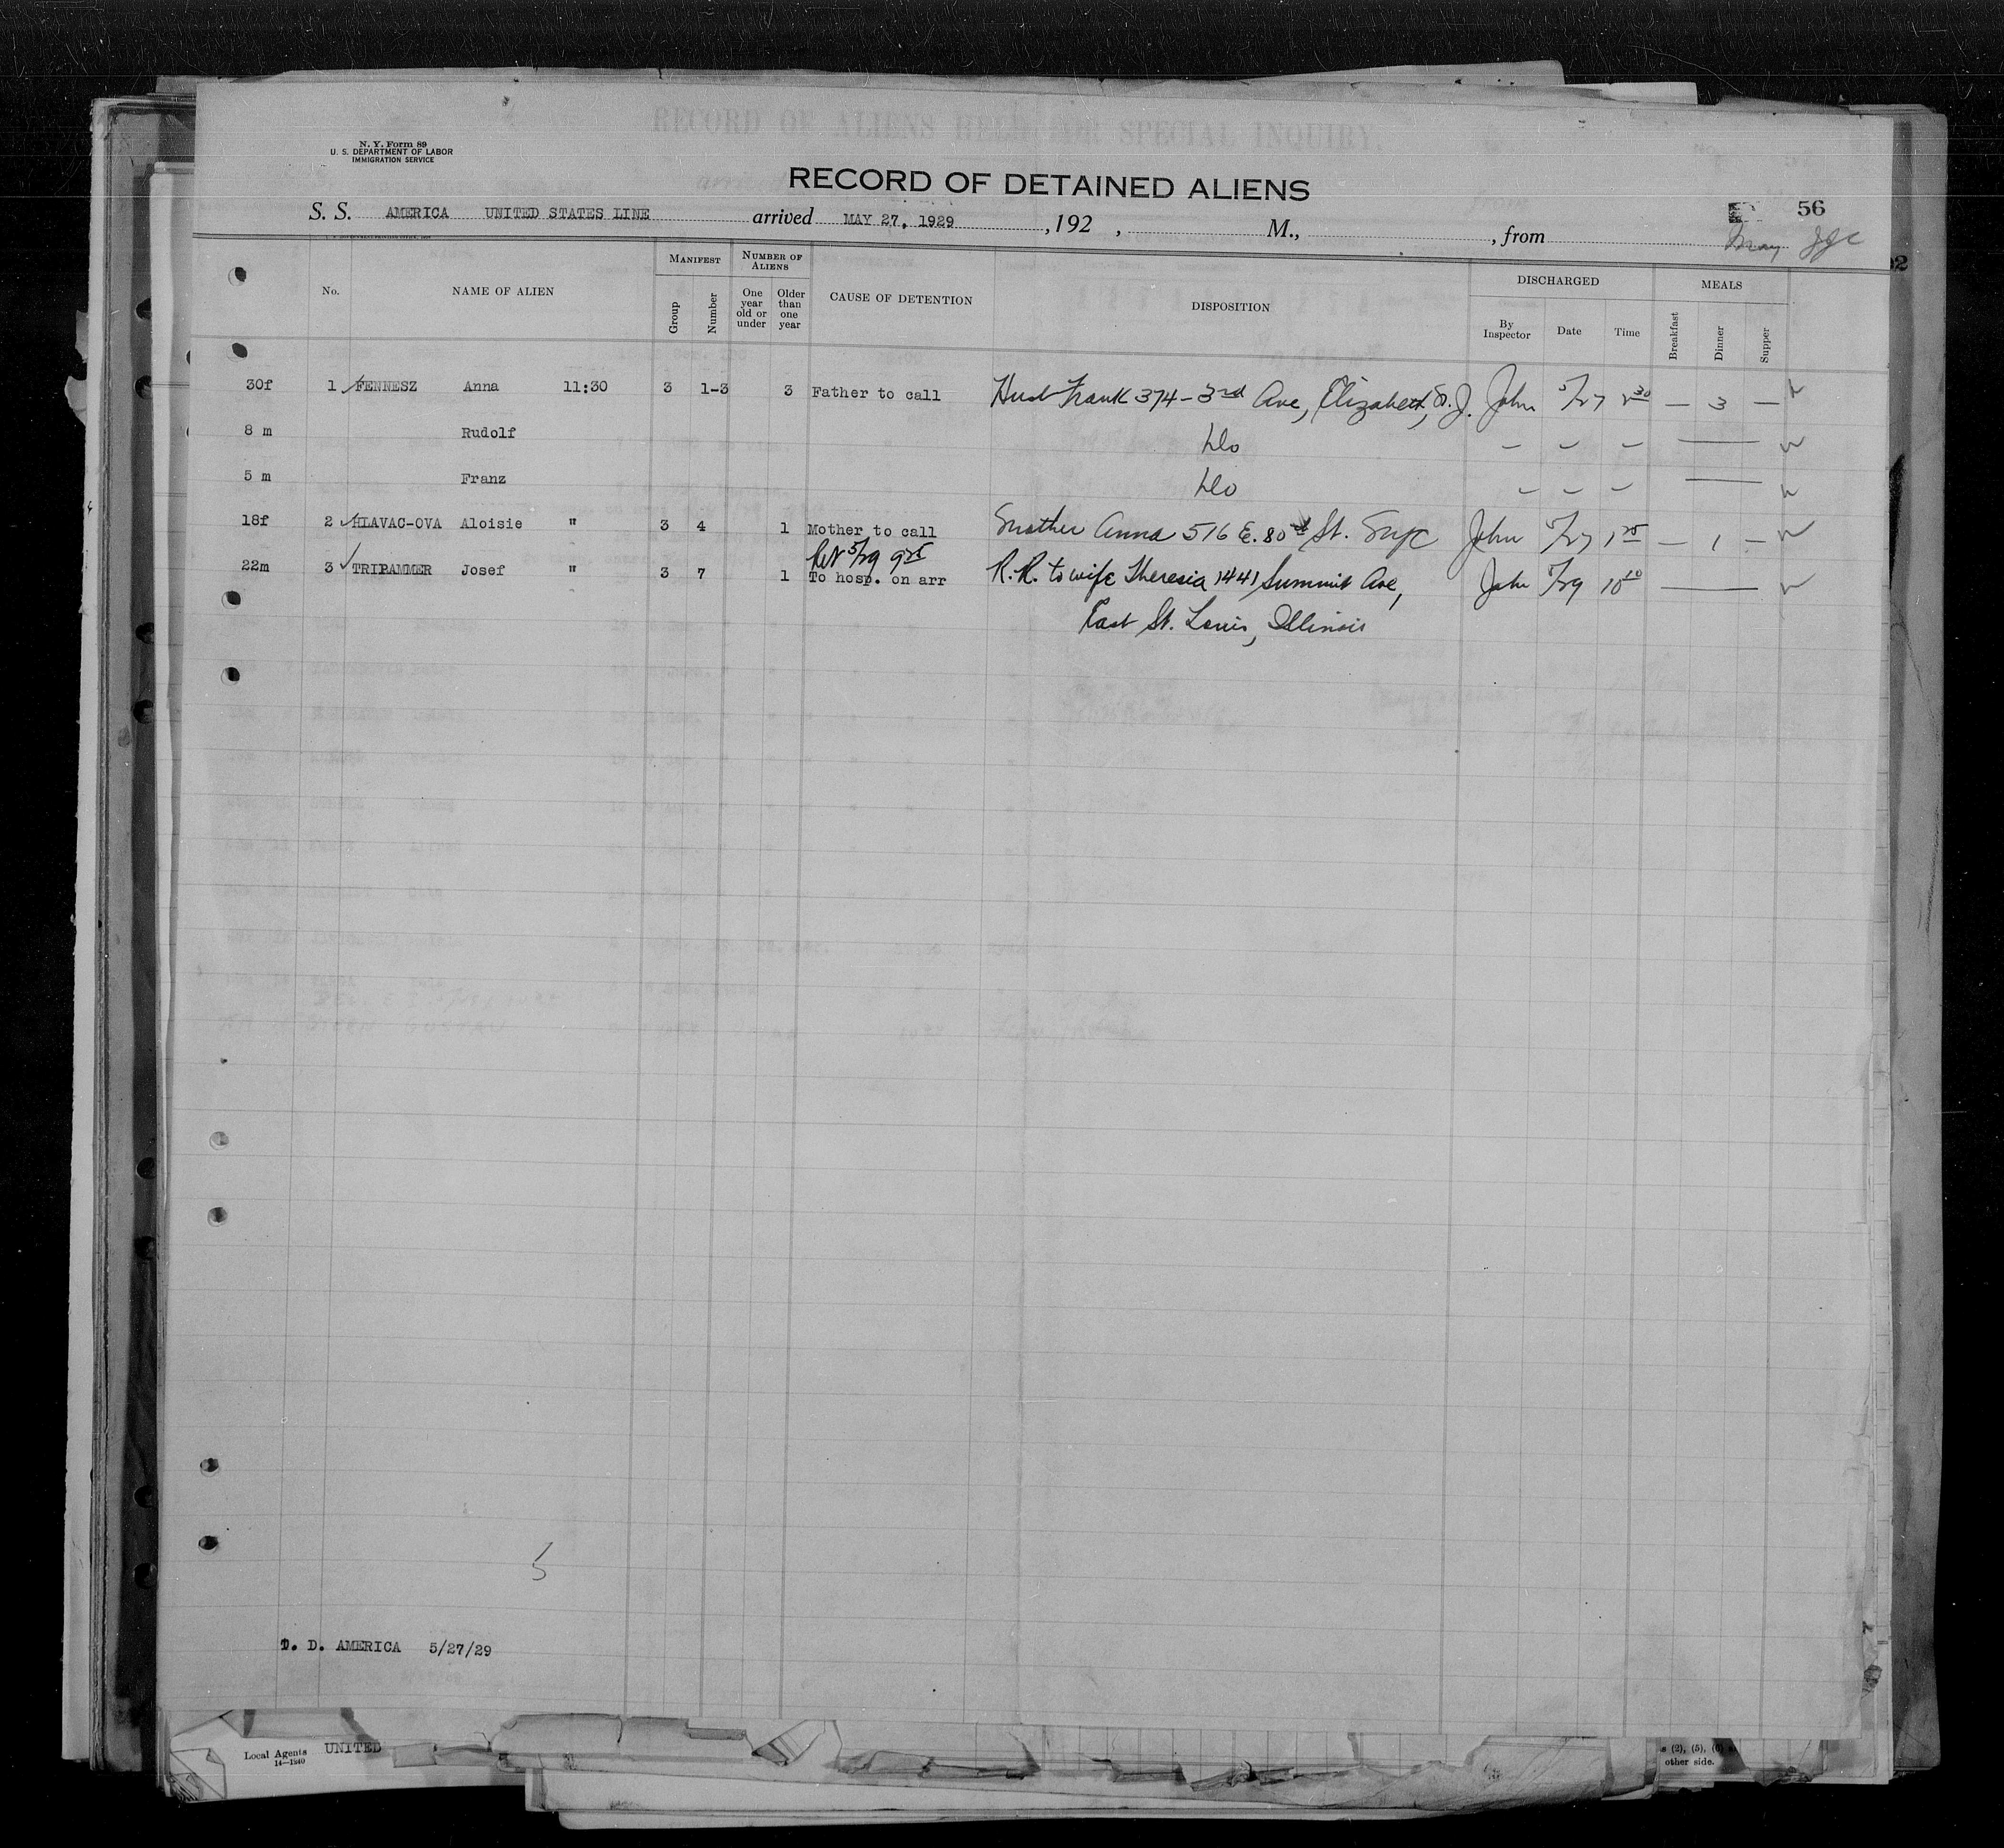 RECORD OF ALIENS HELD FOR SPECIAL INQUIRY.
N. Y. Form 89
U. S. DEPARTMENT OF LABOR
IMMIGRATION SERVICE
RECORD OF DETAINED ALIENS
S. S. AMERICA UNITED STATES LINE arrived MAY 27, 1929 , 192 , M., , from
56
May
No. NAME OF ALIEN MANIFEST Group Number NUMBER OF ALIENS One year old or under Older than one year CAUSE OF DETENTION DISPOSITION DISCHARGED By Inspector Date Time MEALS Breakfast Dinner Supper
30f 1 FENNESZ Anna 11:30 3 1-3 3 Father to call Husb Frank 374 - 3rd Ave, Elizabeth, N. J. John 5/27 2 30 — 3 —
8 m Rudolf Do – – – —
5 m Franz Do – – – —
18f 2 HLAVAC-OVA Aloisie " 3 4 1 Mother to call Mother Anna 516 E. 80th St. NYC John 5/27 1 25 – 1 –
Ret 5/29 9 25
22m 3 TRIPAMMER Josef " 3 7 1 To hosp. on arr R.R. to wife Theresia 1441 Summit Ave, John 5/29 10 10 —
East St. Louis, Illinois
5
D. D. AMERICA 5/27/29
Local Agents UNITED
14—1240
s (2), (5), (6)
other side.